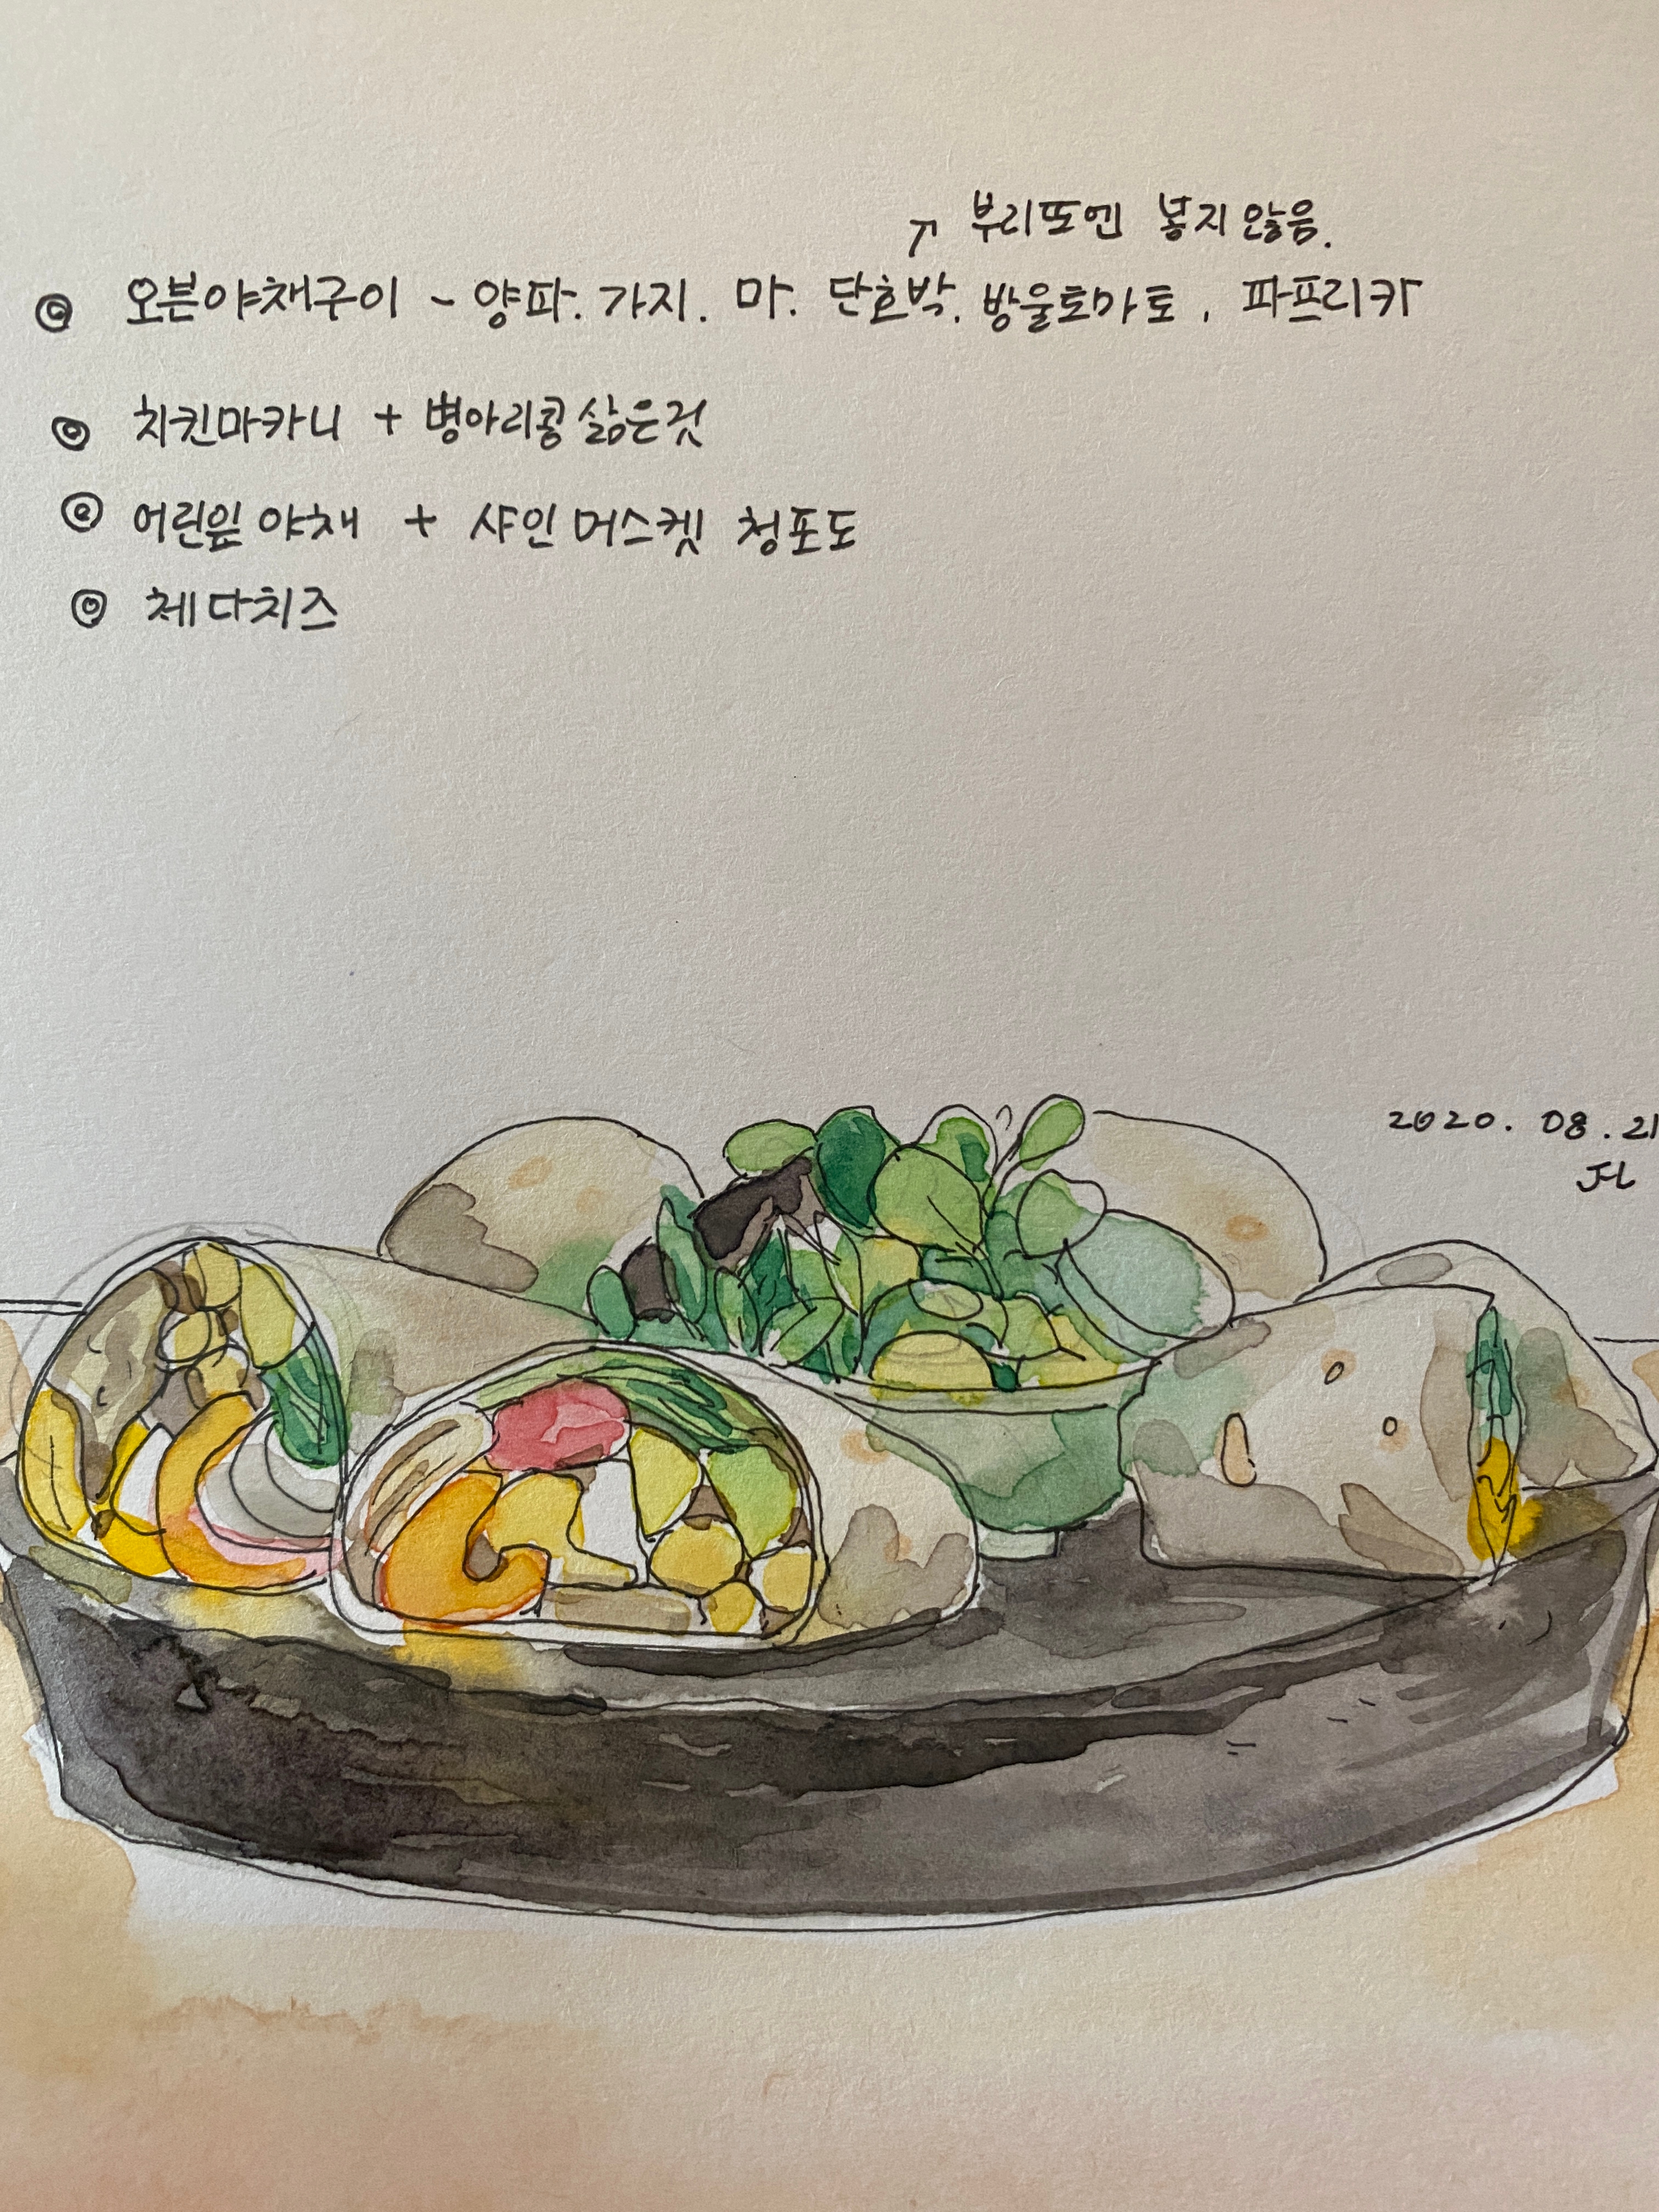 ↗ 부리또엔 넣지 않음.
◎ 오븐야채구이 - 양파. 가지. 마. 단호박. 방울토마토, 파프리카
◎ 치킨마카니 + 병아리콩 삶은것
◎ 어린잎 야채 + 샤인 머스켓 청포도
◎ 체다치즈
2020. 08. 21